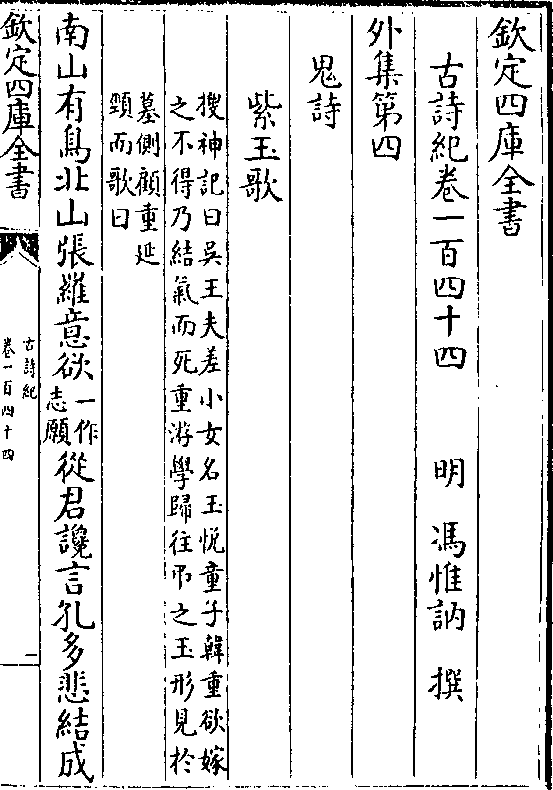 欽定四庫全書
古詩紀卷一百四十四
明 馮惟訥 撰
外集第四
鬼詩
紫玉歌
搜神記曰吳王夫差小女名玉悅童子韓重欲嫁
之不得乃結氣而死重游學歸往弔之玉形見於
墓側顧重延
頸而歌曰
南山有鳥北山張羅意欲一作志願從君讒言孔多悲結成
欽定四庫全書
古詩紀
卷一百四十四
一